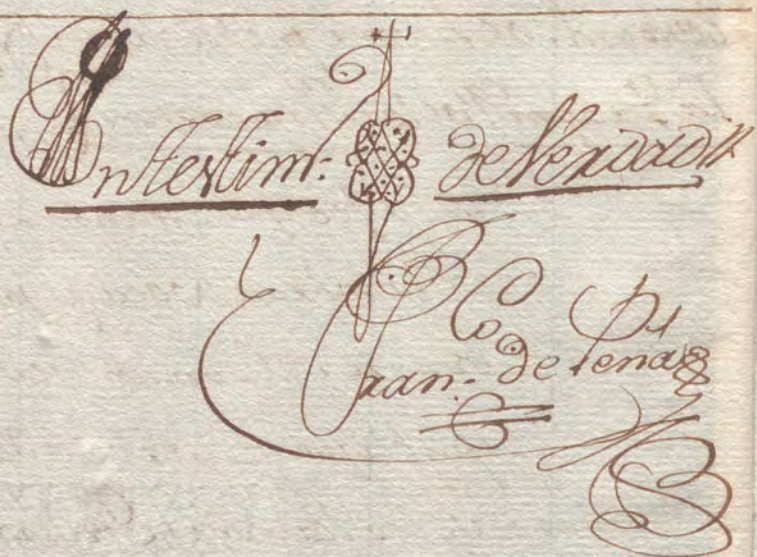 En testim.º de Verdad
Fran.co de Peña